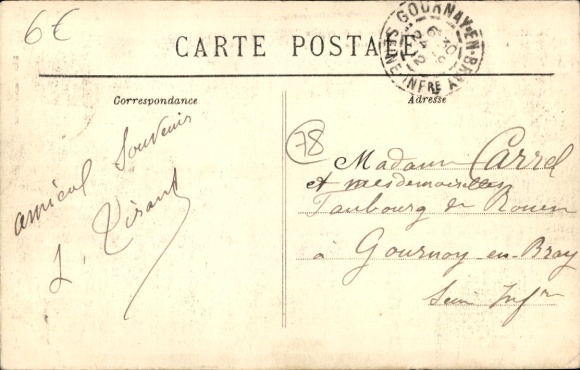 6€
CARTE POSTALE
GOURNAY-EN-BRAY
SEINE INFRE
Correspondance
Adresse
amical Souvenir
L.
78
Madame Carrel
et mesdemoiselles
Faubourg de Rouen
à Gournay-en-Bray
Seine Infre